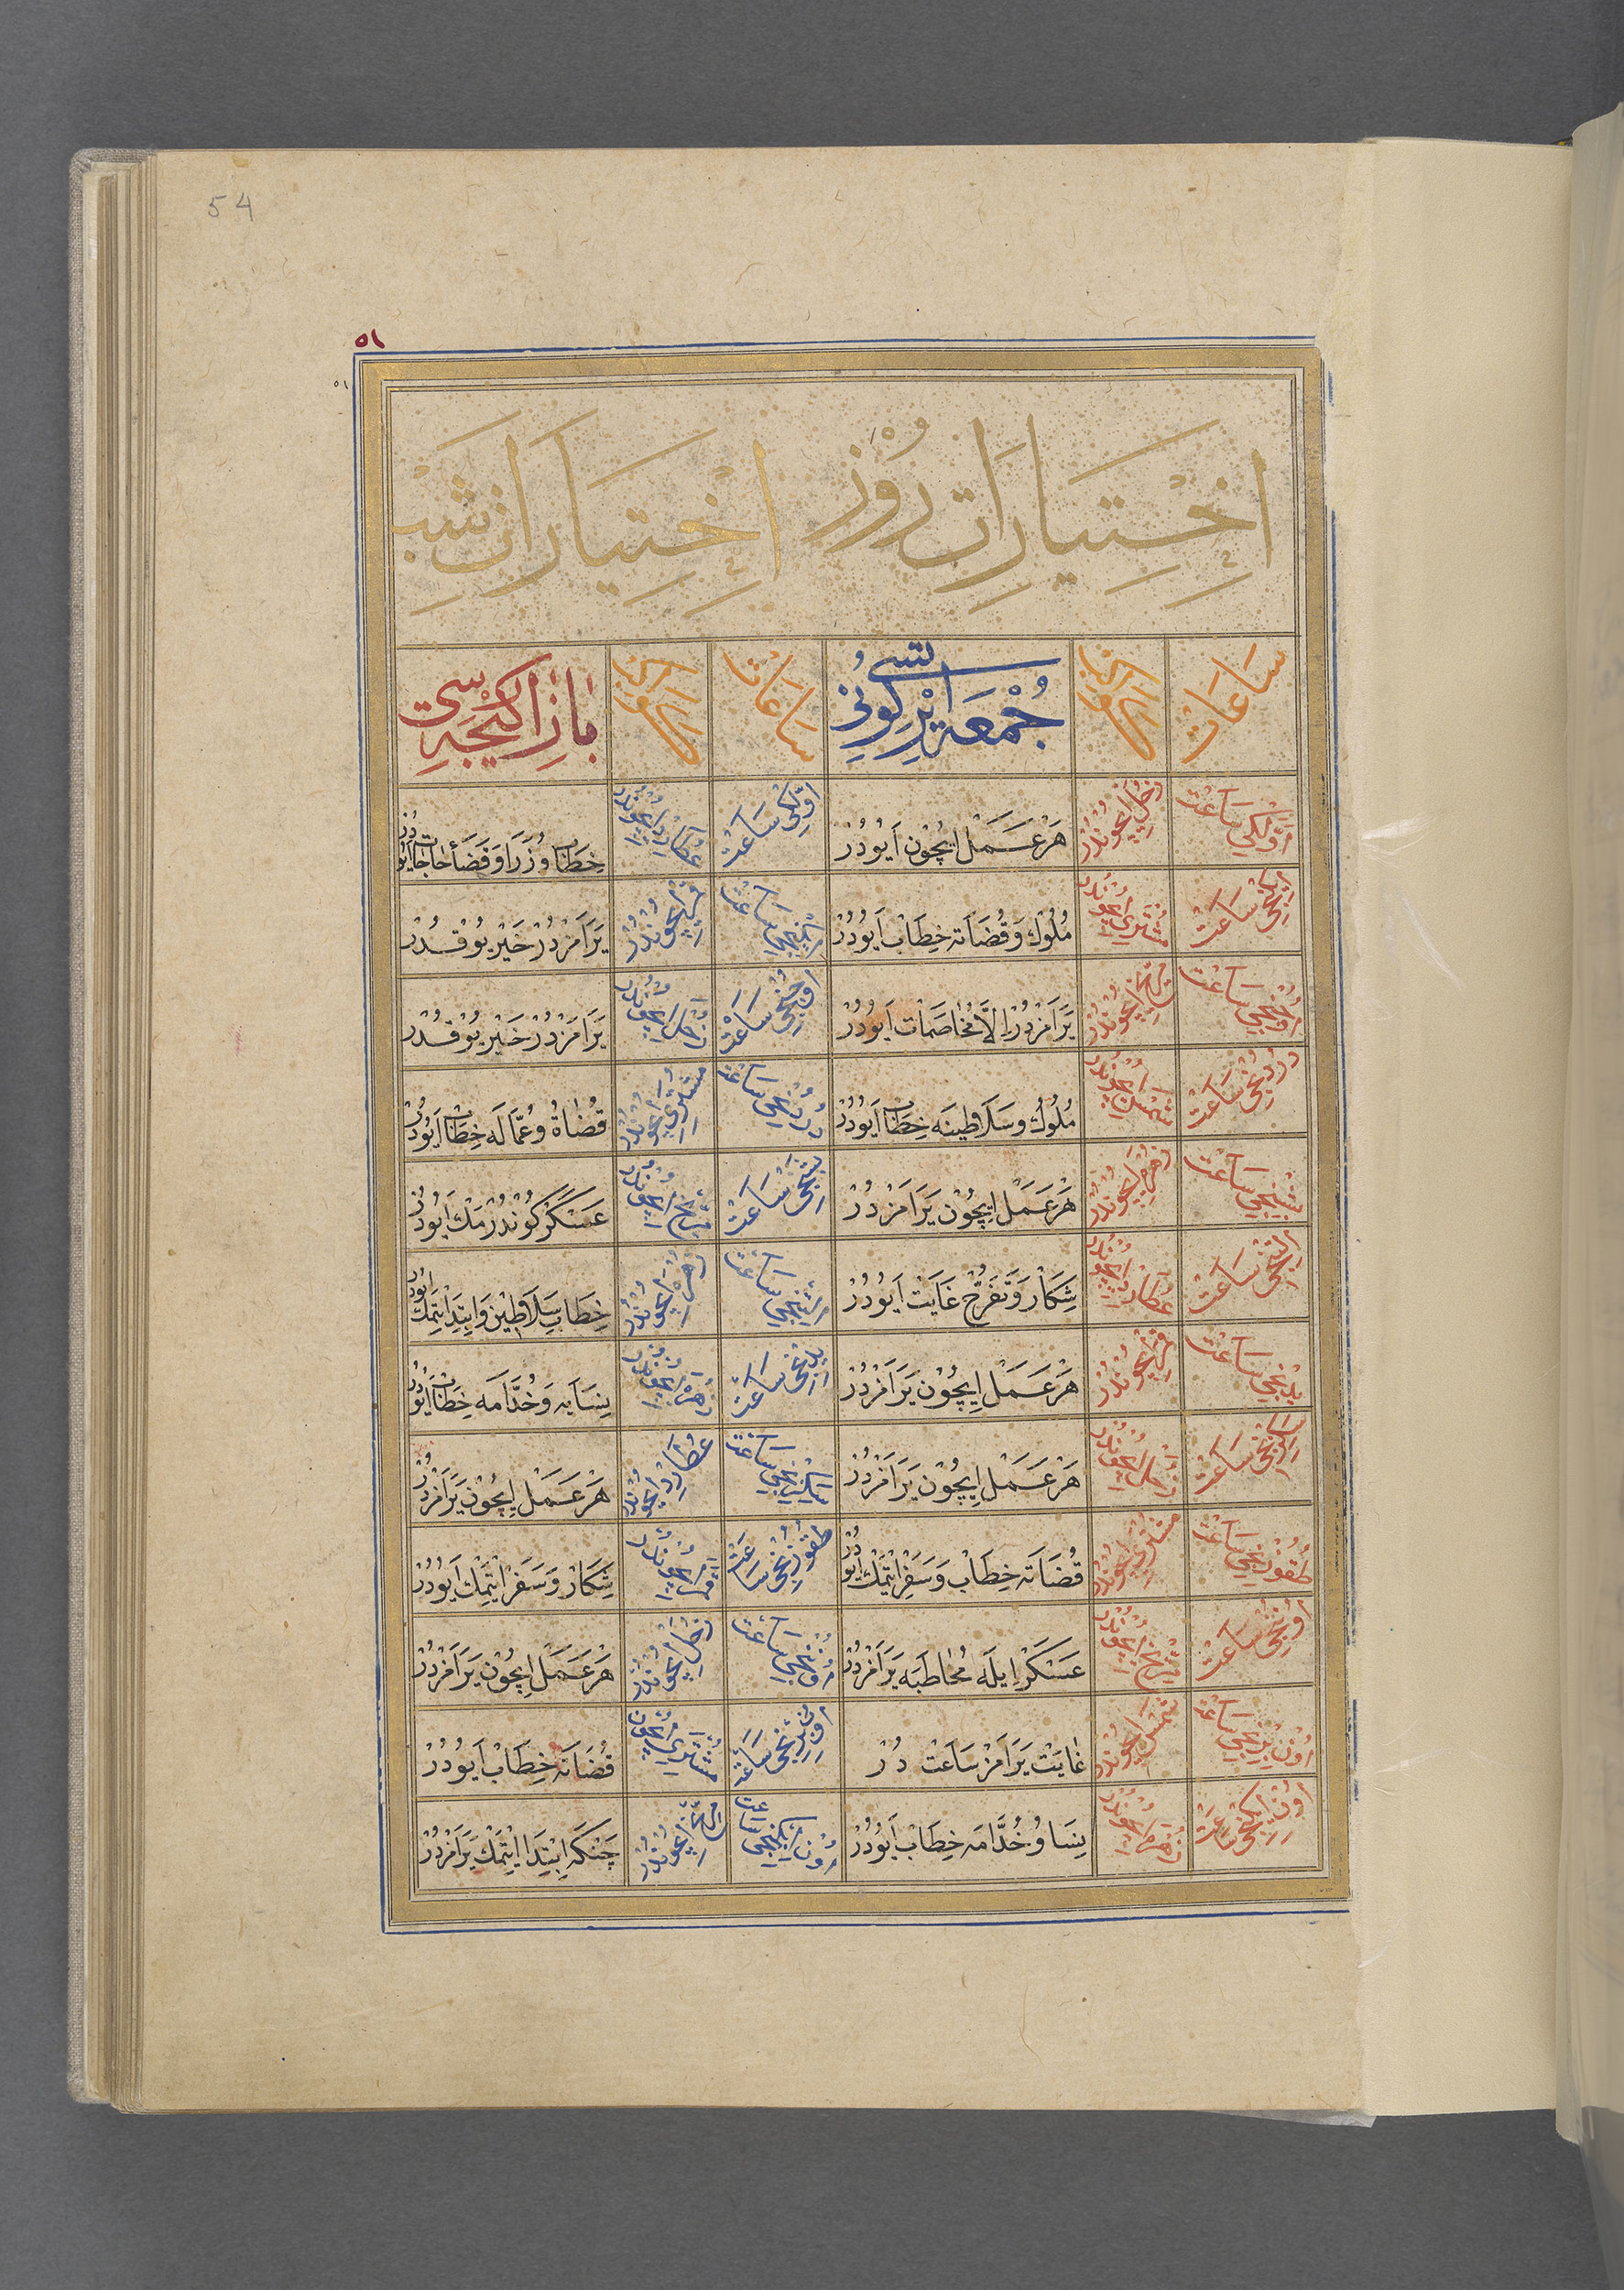 54
٥١
٥١
اِخْتِيَارَاتِ رُوزْ اِخْتِيَارَاتِ شَبْ
سَاعَاتْ جُمْعَه اِيرْتَسِي كُونِي سَاعَاتْ بَازَارْ كِيجَه سِي
اَوَّلْكِي سَاعَتْ زُحَلْ اِيچُونْدُرْ هَرْ عَمَلْ اِيچُونْ اَيُودُرْ اَوَّلْكِي سَاعَتْ عُطَارِدْ اِيچُونْدُرْ خِطَابِ وُزَرَا وَ قَضَاءِ حَاجَاتْ اَيُودُرْ
اِيكِنْجِي سَاعَتْ مُشْتَرِي اِيچُونْدُرْ مُلُوكْ وَ قُضَاتَه خِطَابْ اَيُودُرْ اِيكِنْجِي سَاعَتْ قَمَرْ اِيچُونْدُرْ يَرَامَزْدُرْ خَيْرْ يُوقْدُرْ
اُوچُنْجِي سَاعَتْ مِرِّيخْ اِيچُونْدُرْ يَرَامَزْدُرْ اِلَّا مُخَاصَمَاتْ اَيُودُرْ اُوچُنْجِي سَاعَتْ زُحَلْ اِيچُونْدُرْ يَرَامَزْدُرْ خَيْرْ يُوقْدُرْ
دُرْدُنْجِي سَاعَتْ شَمْسْ اِيچُونْدُرْ مُلُوكْ وَ سَلَاطِينَه خِطَابْ اَيُودُرْ دُرْدُنْجِي سَاعَتْ مُشْتَرِي اِيچُونْدُرْ قُضَاةْ وُ عُمَّالَه خِطَابْ اَيُودُرْ
بِشِنْجِي سَاعَتْ زُهْرَه اِيچُونْدُرْ هَرْ عَمَلْ اِيچُونْ يَرَامَزْدُرْ بِشِنْجِي سَاعَتْ مِرِّيخْ اِيچُونْدُرْ عَسْكَرْ كُونْدُرْمَكْ اَيُودُرْ
اَلْتِنْجِي سَاعَتْ عُطَارِدْ اِيچُونْدُرْ شِكَارْ وَ تَفَرُّجْ غَايَتْ اَيُودُرْ سَاعَتْ اِيچُونْدُرْ خِطَابِ سَلَاطِينْ وَ اِبْتِدَا اِتْمَكْ اَيُودُرْ
يِدِنْجِي سَاعَتْ قَمَرْ اِيچُونْدُرْ هَرْ عَمَلْ اِيچُونْ يَرَامَزْدُرْ يِدِنْجِي سَاعَتْ زُهْرَه اِيچُونْدُرْ نِسَايَه وَ خُدَّامَه خِطَابْ اَيُودُرْ
سِكِزِنْجِي سَاعَتْ زُحَلْ اِيچُونْدُرْ هَرْ عَمَلْ اِيچُونْ يَرَامَزْدُرْ سِكِزِنْجِي سَاعَتْ عُطَارِدْ اِيچُونْدُرْ هَرْ عَمَلْ اِيچُونْ يَرَامَزْدُرْ
طُقُوزِنْجِي سَاعَتْ مُشْتَرِي اِيچُونْدُرْ قُضَاتَه خِطَابْ وَ سَفَرْ اِتْمَكْ اَيُودُرْ طُقُوزِنْجِي سَاعَتْ قَمَرْ اِيچُونْدُرْ شِكَارْ وَ سَفَرْ اِتْمَكْ اَيُودُرْ
اُونُنْجِي سَاعَتْ مِرِّيخْ اِيچُونْدُرْ عَسْكَرْ اِيلَه مُخَاطَبَه يَرَامَزْدُرْ اُونُنْجِي سَاعَتْ زُحَلْ اِيچُونْدُرْ هَرْ عَمَلْ اِيچُونْ يَرَامَزْدُرْ
اُونْ بِرِنْجِي سَاعَتْ شَمْسْ اِيچُونْدُرْ غَايَتْ يَرَامَزْ سَاعَتْ دُرْ اُونْ بِرِنْجِي سَاعَتْ مُشْتَرِي اِيچُونْ قُضَاتَه خِطَابْ اَيُودُرْ
اُونْ اِيكِنْجِي سَاعَتْ زُهْرَه اِيچُونْدُرْ نِسَا وُ خُدَّامَه خِطَابْ اَيُودُرْ اُونْ اِيكِنْجِي سَاعَتْ مِرِّيخْ اِيچُونْدُرْ جَنْكَه اِبْتِدَا اِتْمَكْ يَرَامَزْدُرْ